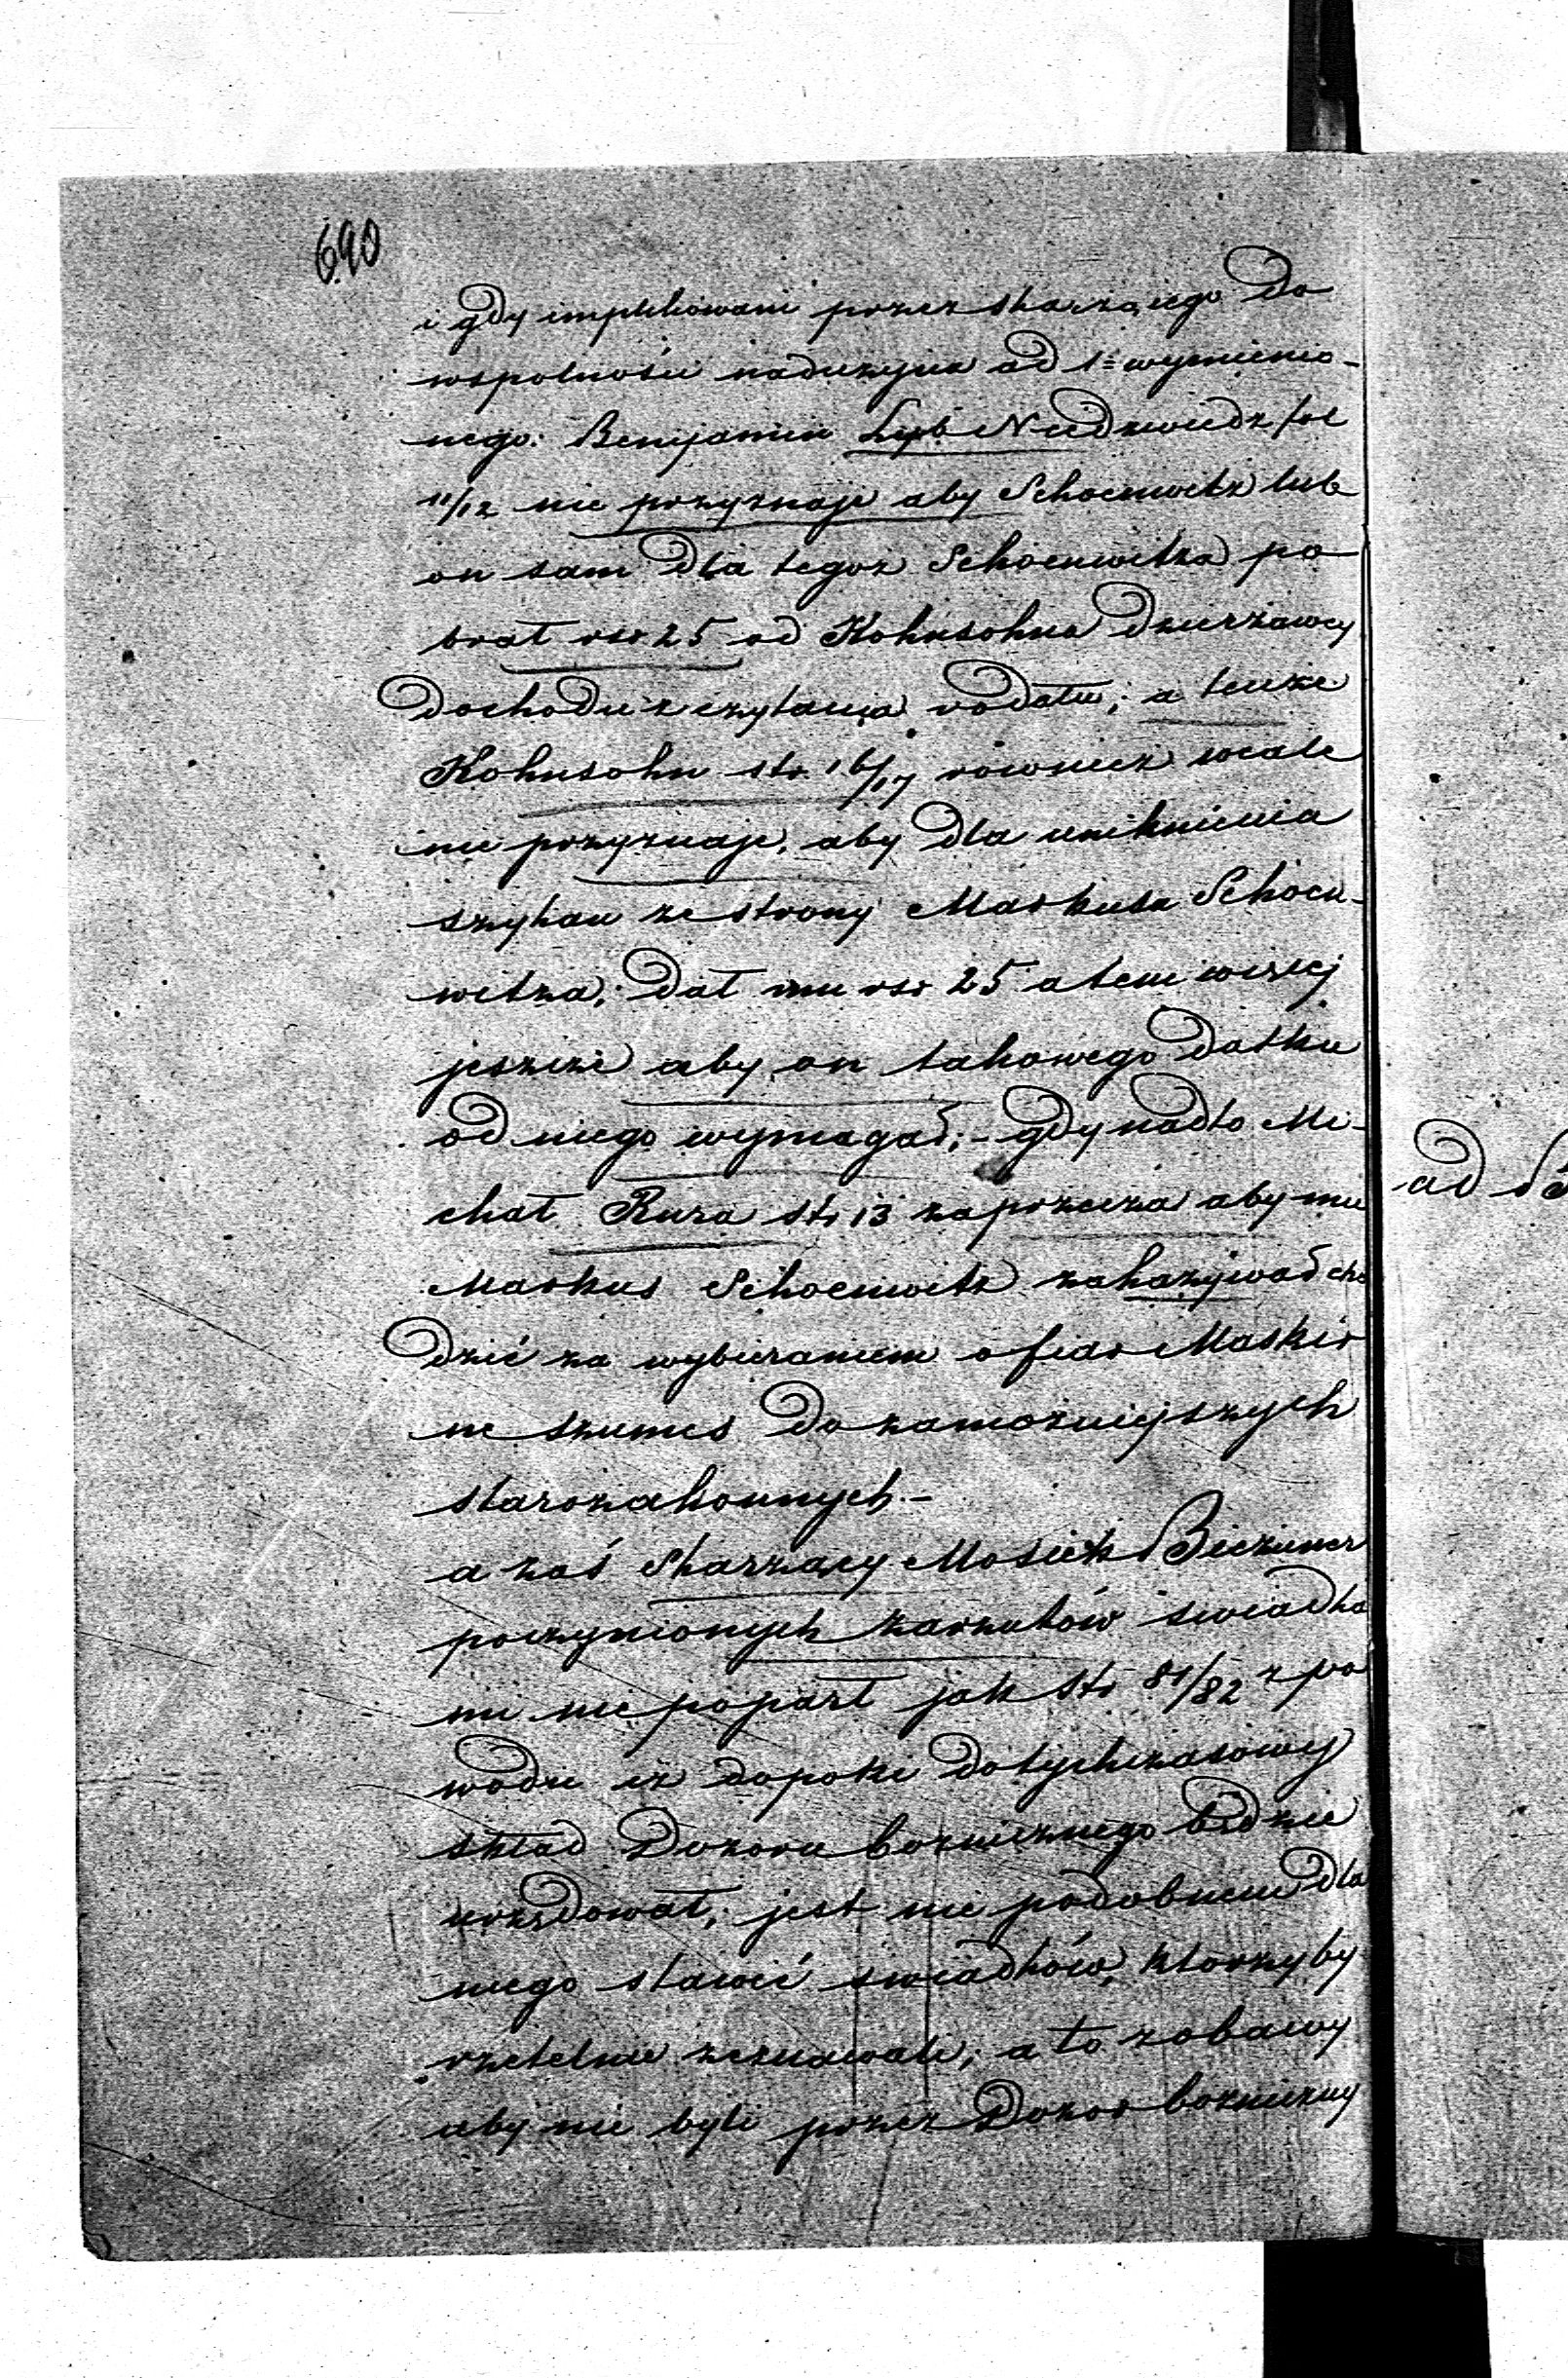 690
i gdy implikowani przez skarzącego do
wspolnosci naduzycia ad 1= wymienio-
nego: Benijamin Lejb Niedzwiedz fol
11/12 nie przyznaje aby Schoenwitz lub
on sam dla tegoz Schoenwitza po
brał rsr 25 od Kohnsohna dzierzawcy
dochodu z czytania rodału; a tenze
Kohnsohn str. 16/17 rowniez wcale
nie przyznaje, aby dla uniknienia
szykan ze strony Markusa Schoen-
witza; dał mu rsr 25 a tem więcej
jeszcze aby on takowego datku
od niego wymagał; - gdy nadto Mi-
chał Kura str 13 zaprzecza aby mu
Markus Schoenwitz zakazywał cho
dzić za wybieraniem ofiar Maskir
ne szumes do zamozniejszych
starozakonnych.-
a zaś Skarzący Mosiek Biezuner
poczynionych zarzutów swiadka
mi nie poparł jak str 81/82 z po
wodu iz dopoki dotychczasowy
skład Dozoru boznicznego będzie
urzędował; jest nie podobnem dla
niego stawić swiadków, ktorzy by
rzetelnie zeznawali; a to z obawy
aby nie byli przez Dozor bozniczny
ad